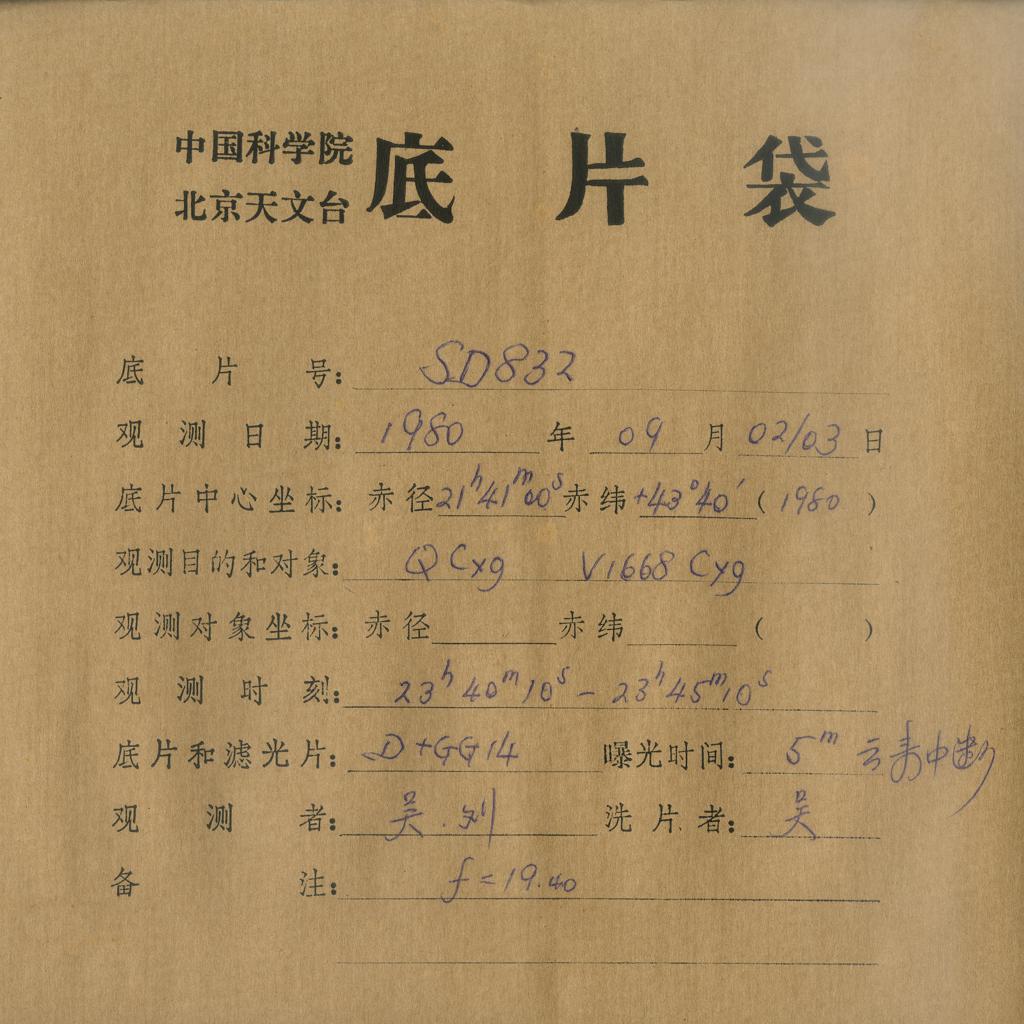 中国科学院
北京天文台
底片袋
底片号: SD832
观测日期: 1980年09月02/03日
底片中心坐标: 赤径21ʰ41ᵐ00ˢ赤纬+43°40′(1980)
观测目的和对象: Q Cyg V1668 Cyg
观测对象坐标: 赤径 赤纬 ( )
观测时刻: 23ʰ40ᵐ10ˢ – 23ʰ45ᵐ10ˢ
底片和滤光片: D+GG14 曝光时间: 5ᵐ 云来中断
观测者: 吴.刘 洗片者: 吴
备注: f=19.40